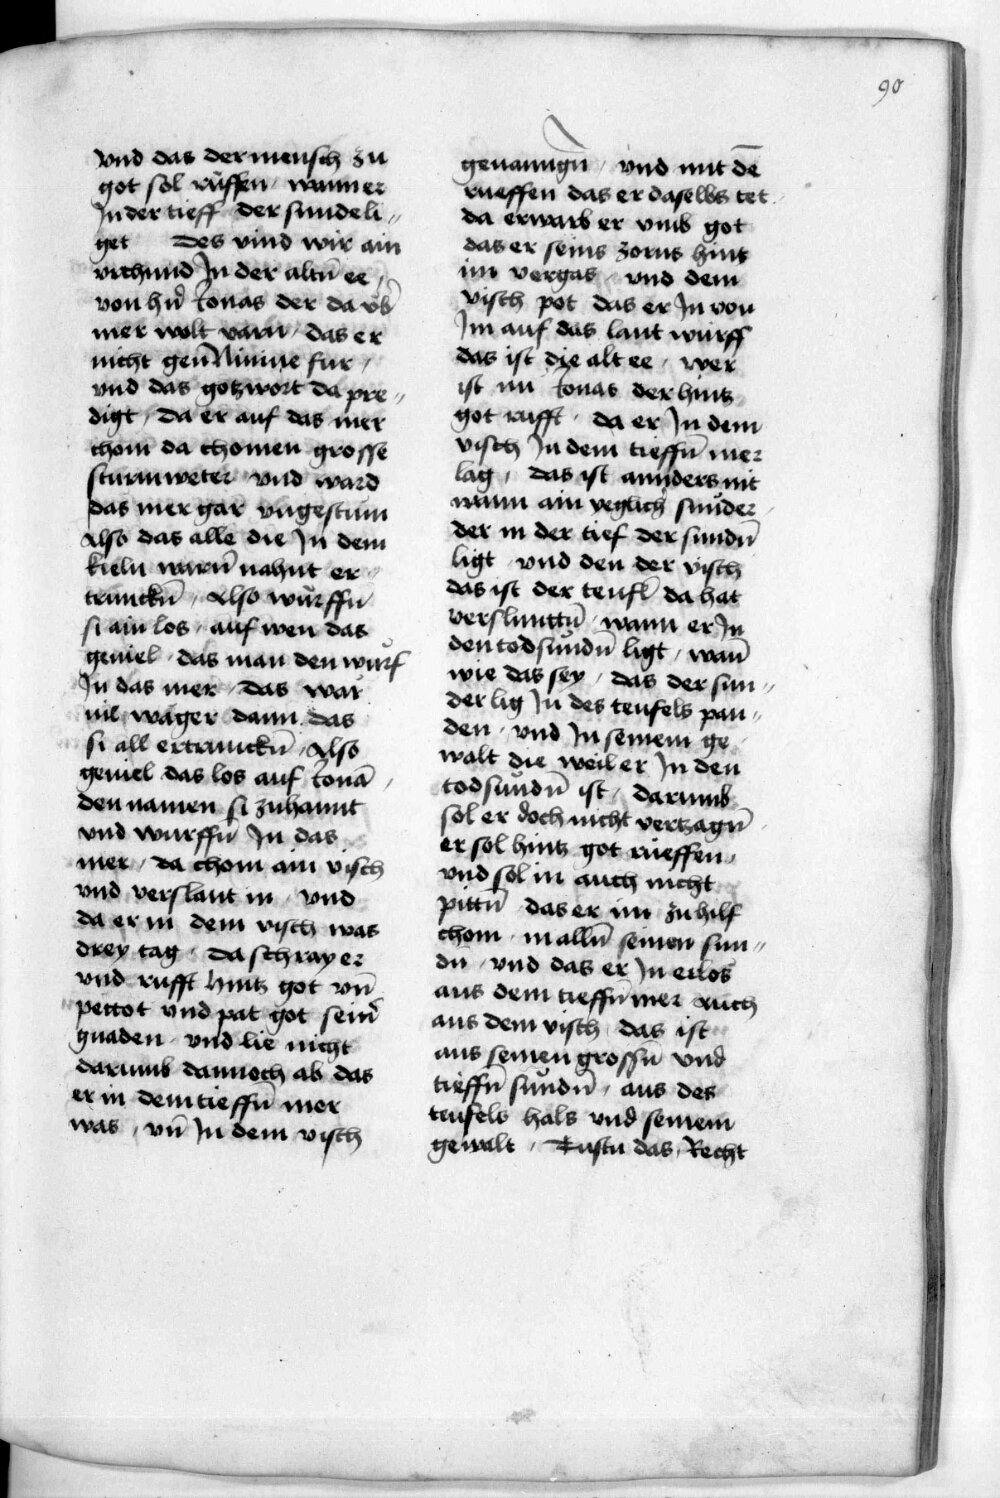 90
vnd das der mensch zu
got sol růffen · wann er
In der tieff der sunde li„
get Des vind wir ain
vrchund In der altn̄ ee ·
von hn̄ Jonas der da vb̄
mer wolt varn · das er
nicht gen̄ Niniue fur ·
vnd das gotzwort da pre„
digt · Da er auf das mer
chom da chomen grosse
sturmweter vnd ward
das mer gar vngestüm
Also das alle die In dem
kieln warn̄ nahnt er„
trunckn̄ · Also wurffn̄
si ain los · auf wen das
geuiel · das man den wůrf
In das mer · Das wär
vil wäger dann das
si all ertrunckn̄ · Also
geuiel das los auf Jonā ·
den namen si zuhannt
vnd wurffn̄ In das
mer · Da chom ain visch
vnd verslant in · vnd
da er in dem visch was
drey tag · Da schray er
vnd rufft hintz got vn̄
pettot vnd pat got sein̄
gnaden · vnd lie nicht
darumb dannoch ab das
er in dem tieffn̄ mer
was · vn̄ In dem visch
geuanngn̄ · vnd mit dē
rueffen das er daselbs tet ·
da erwarb er vmb got
das er seins zorns hintz
im vergas · vnd dem
visch pot das er In von
Im auf das lant wurff
das ist die alt ee · wer
ist nu Jonas der hintz
got rufft · da er In dem
visch In dem tieffn̄ mer
lag · das ist annders nit
wann ain yeglich sůnder ·
der in der tief der sundn̄
ligt · vnd den der visch
das ist der teufl da hat
verslunttn̄ · wann er In
den todsůndn̄ ligt · wan̄
wie das sey · das der sun„
der lig In des teufels pan„
den · vnd In seinem ge„
walt die weil er In den
todsůndn̄ ist · darumb
sol er doch nicht vertzagn̄ ·
er sol hintz got rüeffen ·
vnd sol in auch nicht
pittn̄ das er im zu hilf
chom · in alln̄ seinen sun„
dn̄ · vnd das er In erlös
aus dem tieffn̄ mer auch
aus dem visch · das ist
aus seinen grossn̄ vnd
tieffn̄ sůndn̄ · aus des
teufels hals vnd seinem
gewalt · Tustu das · Recht